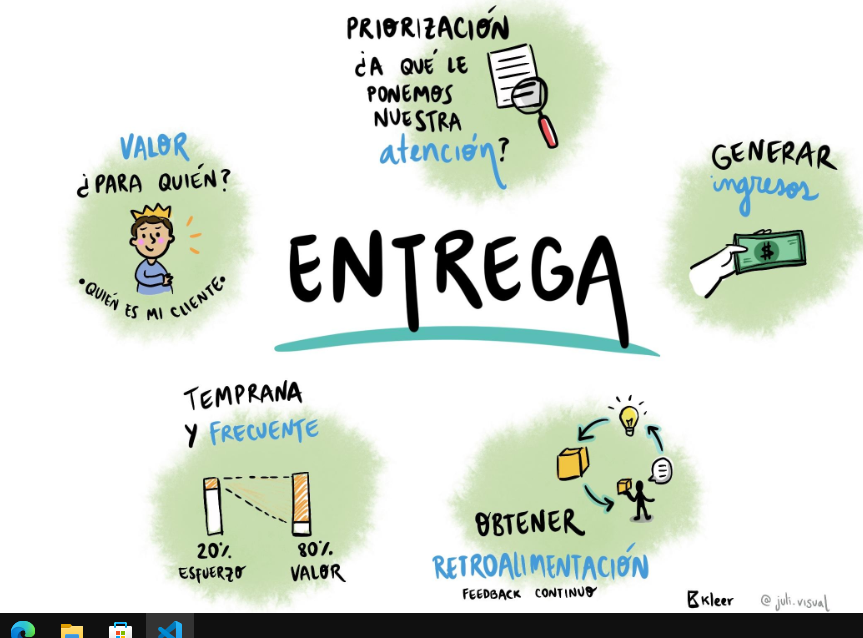 PRIORIZACIÓN
¿A QUÉ LE
PONEMOS
NUESTRA
atención?
VALOR
¿PARA QUIÉN?
•QUIÉN ES MI CLIENTE•
GENERAR
ingresos
$
ENTREGA
TEMPRANA
Y FRECUENTE
20%
ESFUERZO
80%
VALOR
OBTENER
RETROALIMENTACIÓN
FEEDBACK CONTINUO
Kleer
@juli.visual